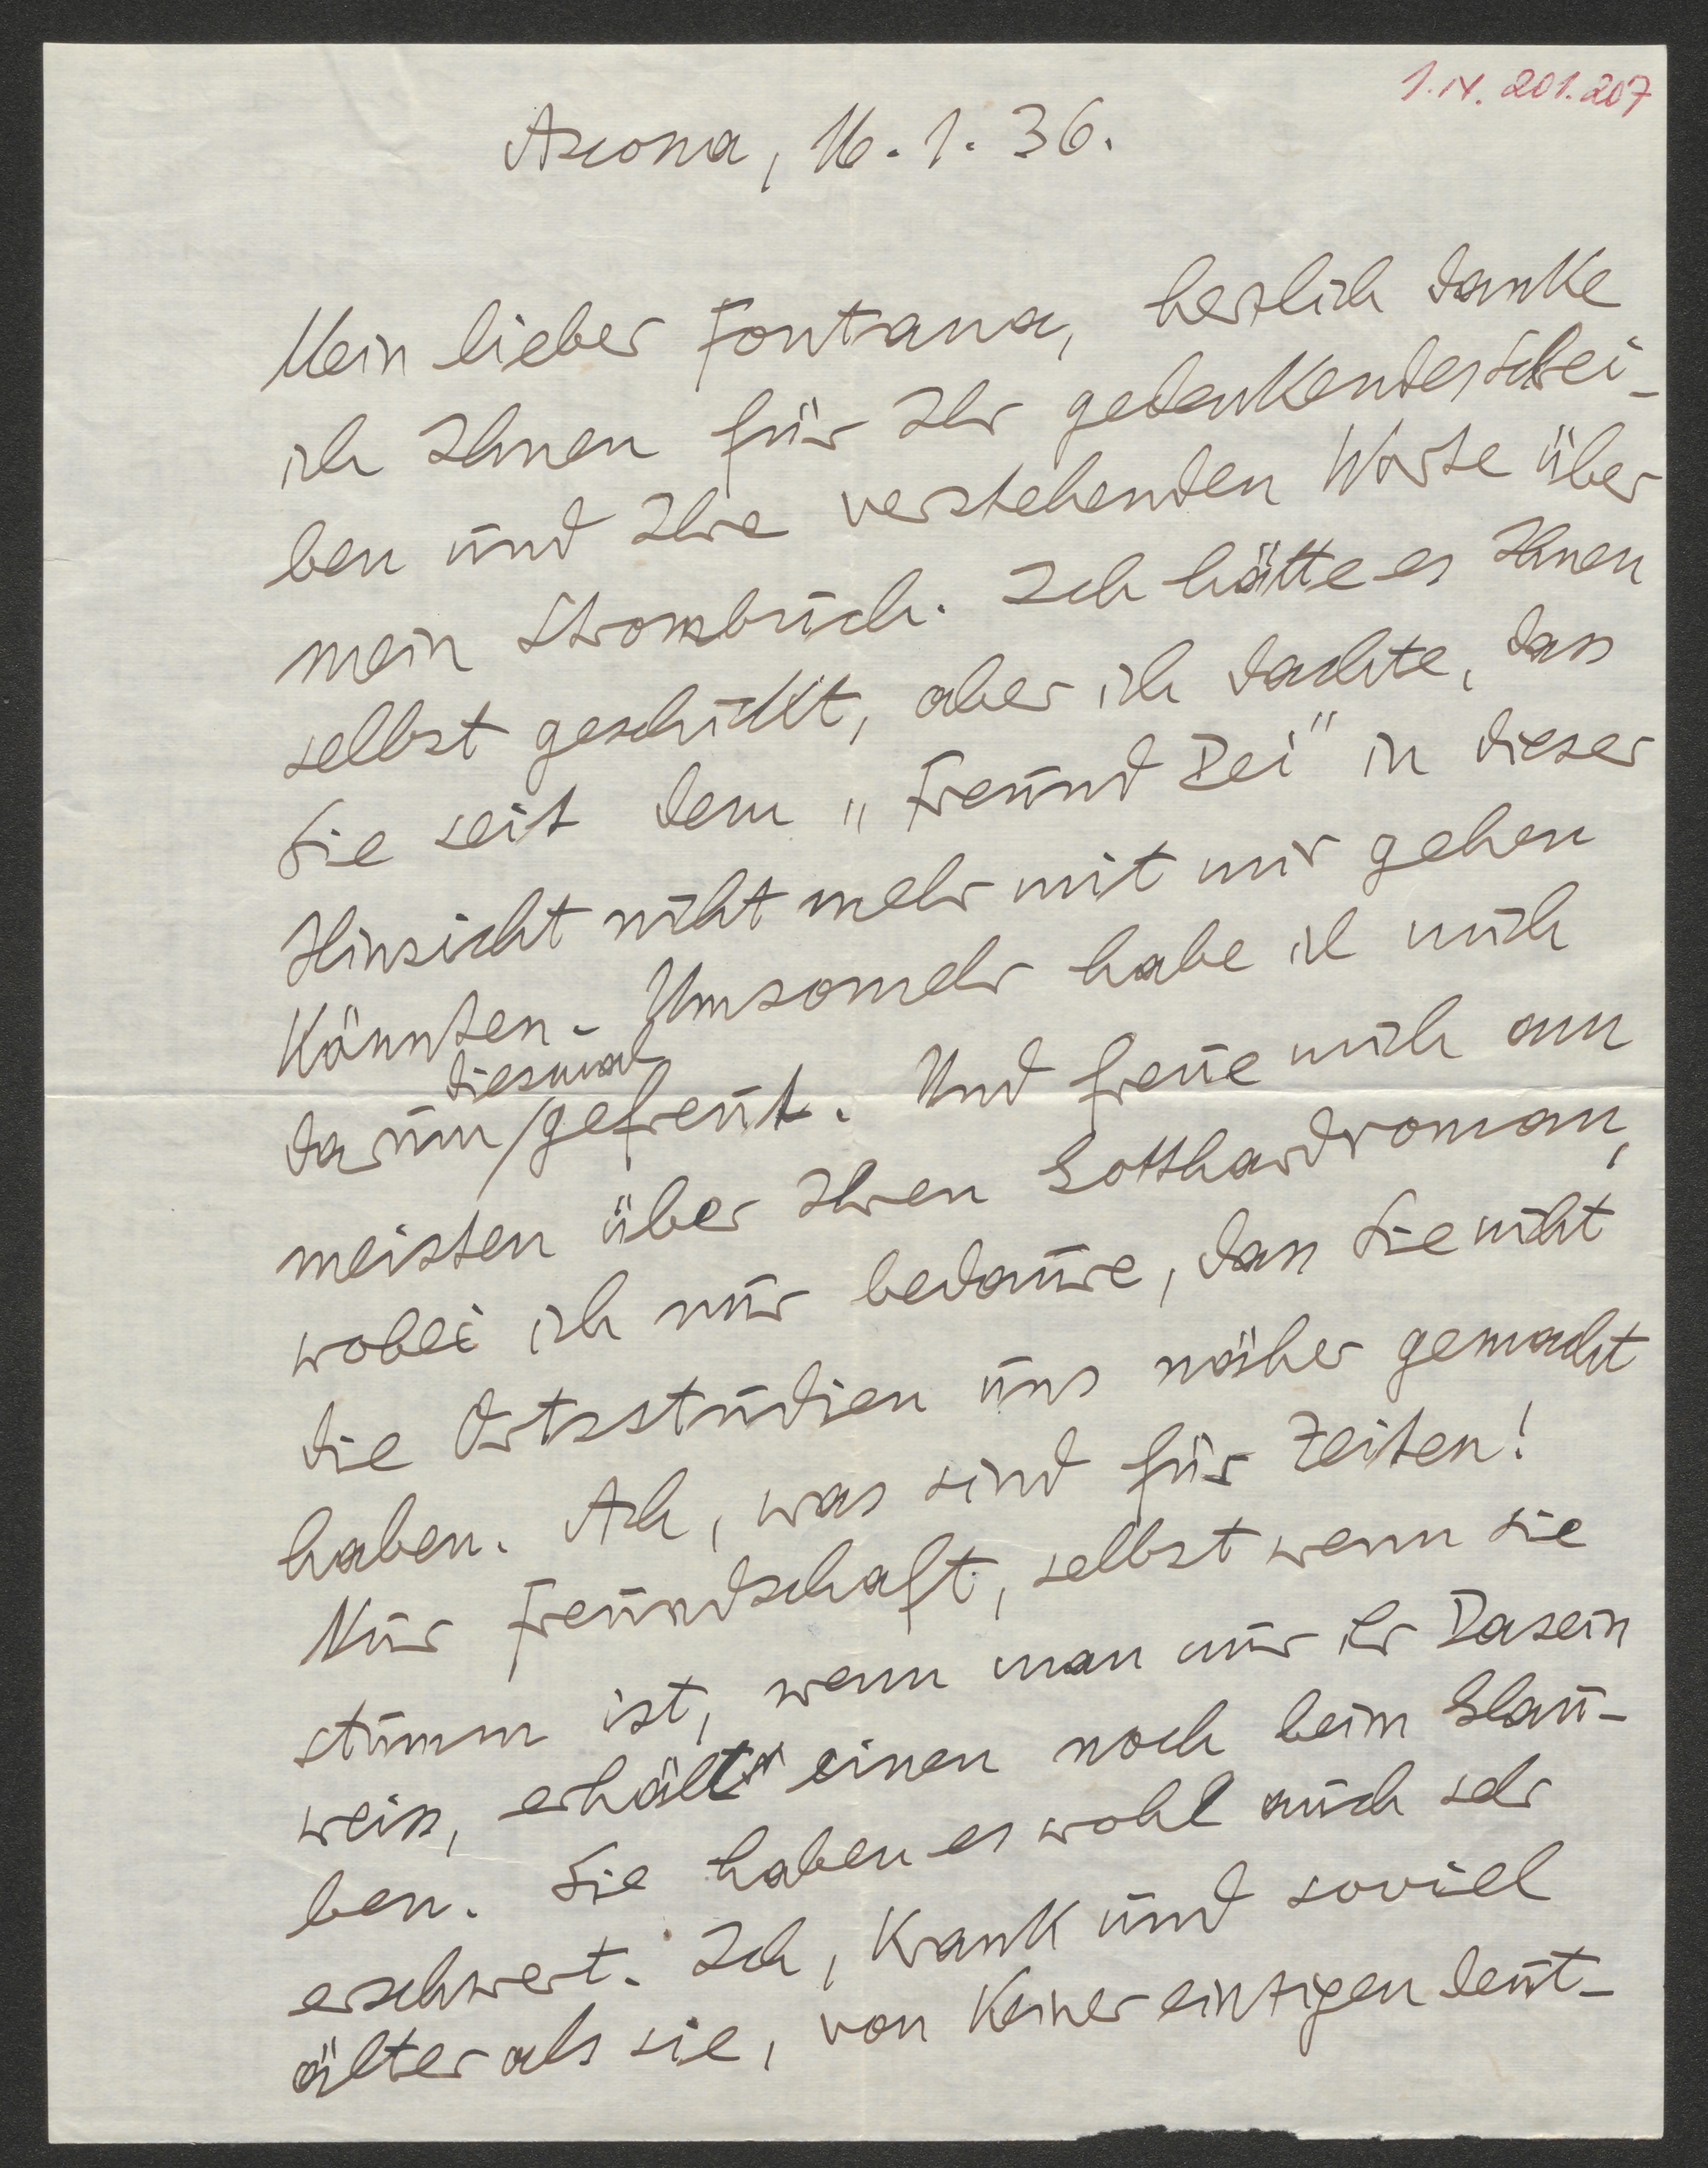 1.N. 201.207
Ascona, 16.1.36.
Mein lieber Fontana, herzlich danke
ich Ihnen für Ihr gedenkendes Schrei-
ben und Ihre verstehenden Worte über
mein Strombuch. Ich hätte es Ihnen
selbst geschickt, aber ich dachte, dass
Sie seit dem „Freund Dei" in dieser
Hinsicht nicht mehr mit mir gehen
könnten. Umsomehr habe ich mich
diesmal
darum/gefreut. Und freue mich am
meisten über Ihren Gotthardroman,
wobei ich nur bedaure, dass Sie nicht
die Ortsstudien uns näher gemacht
haben. Ach, was sind für Zeiten!
Nur Freundschaft, selbst wenn sie
stumm ist, wenn man nur ihr Dasein
weiss, erhält einen noch beim Glau-
ben. Sie haben es wohl auch sehr
erschwert. Ich, krank und soviel
älter als sie, von keiner einzigen deut-